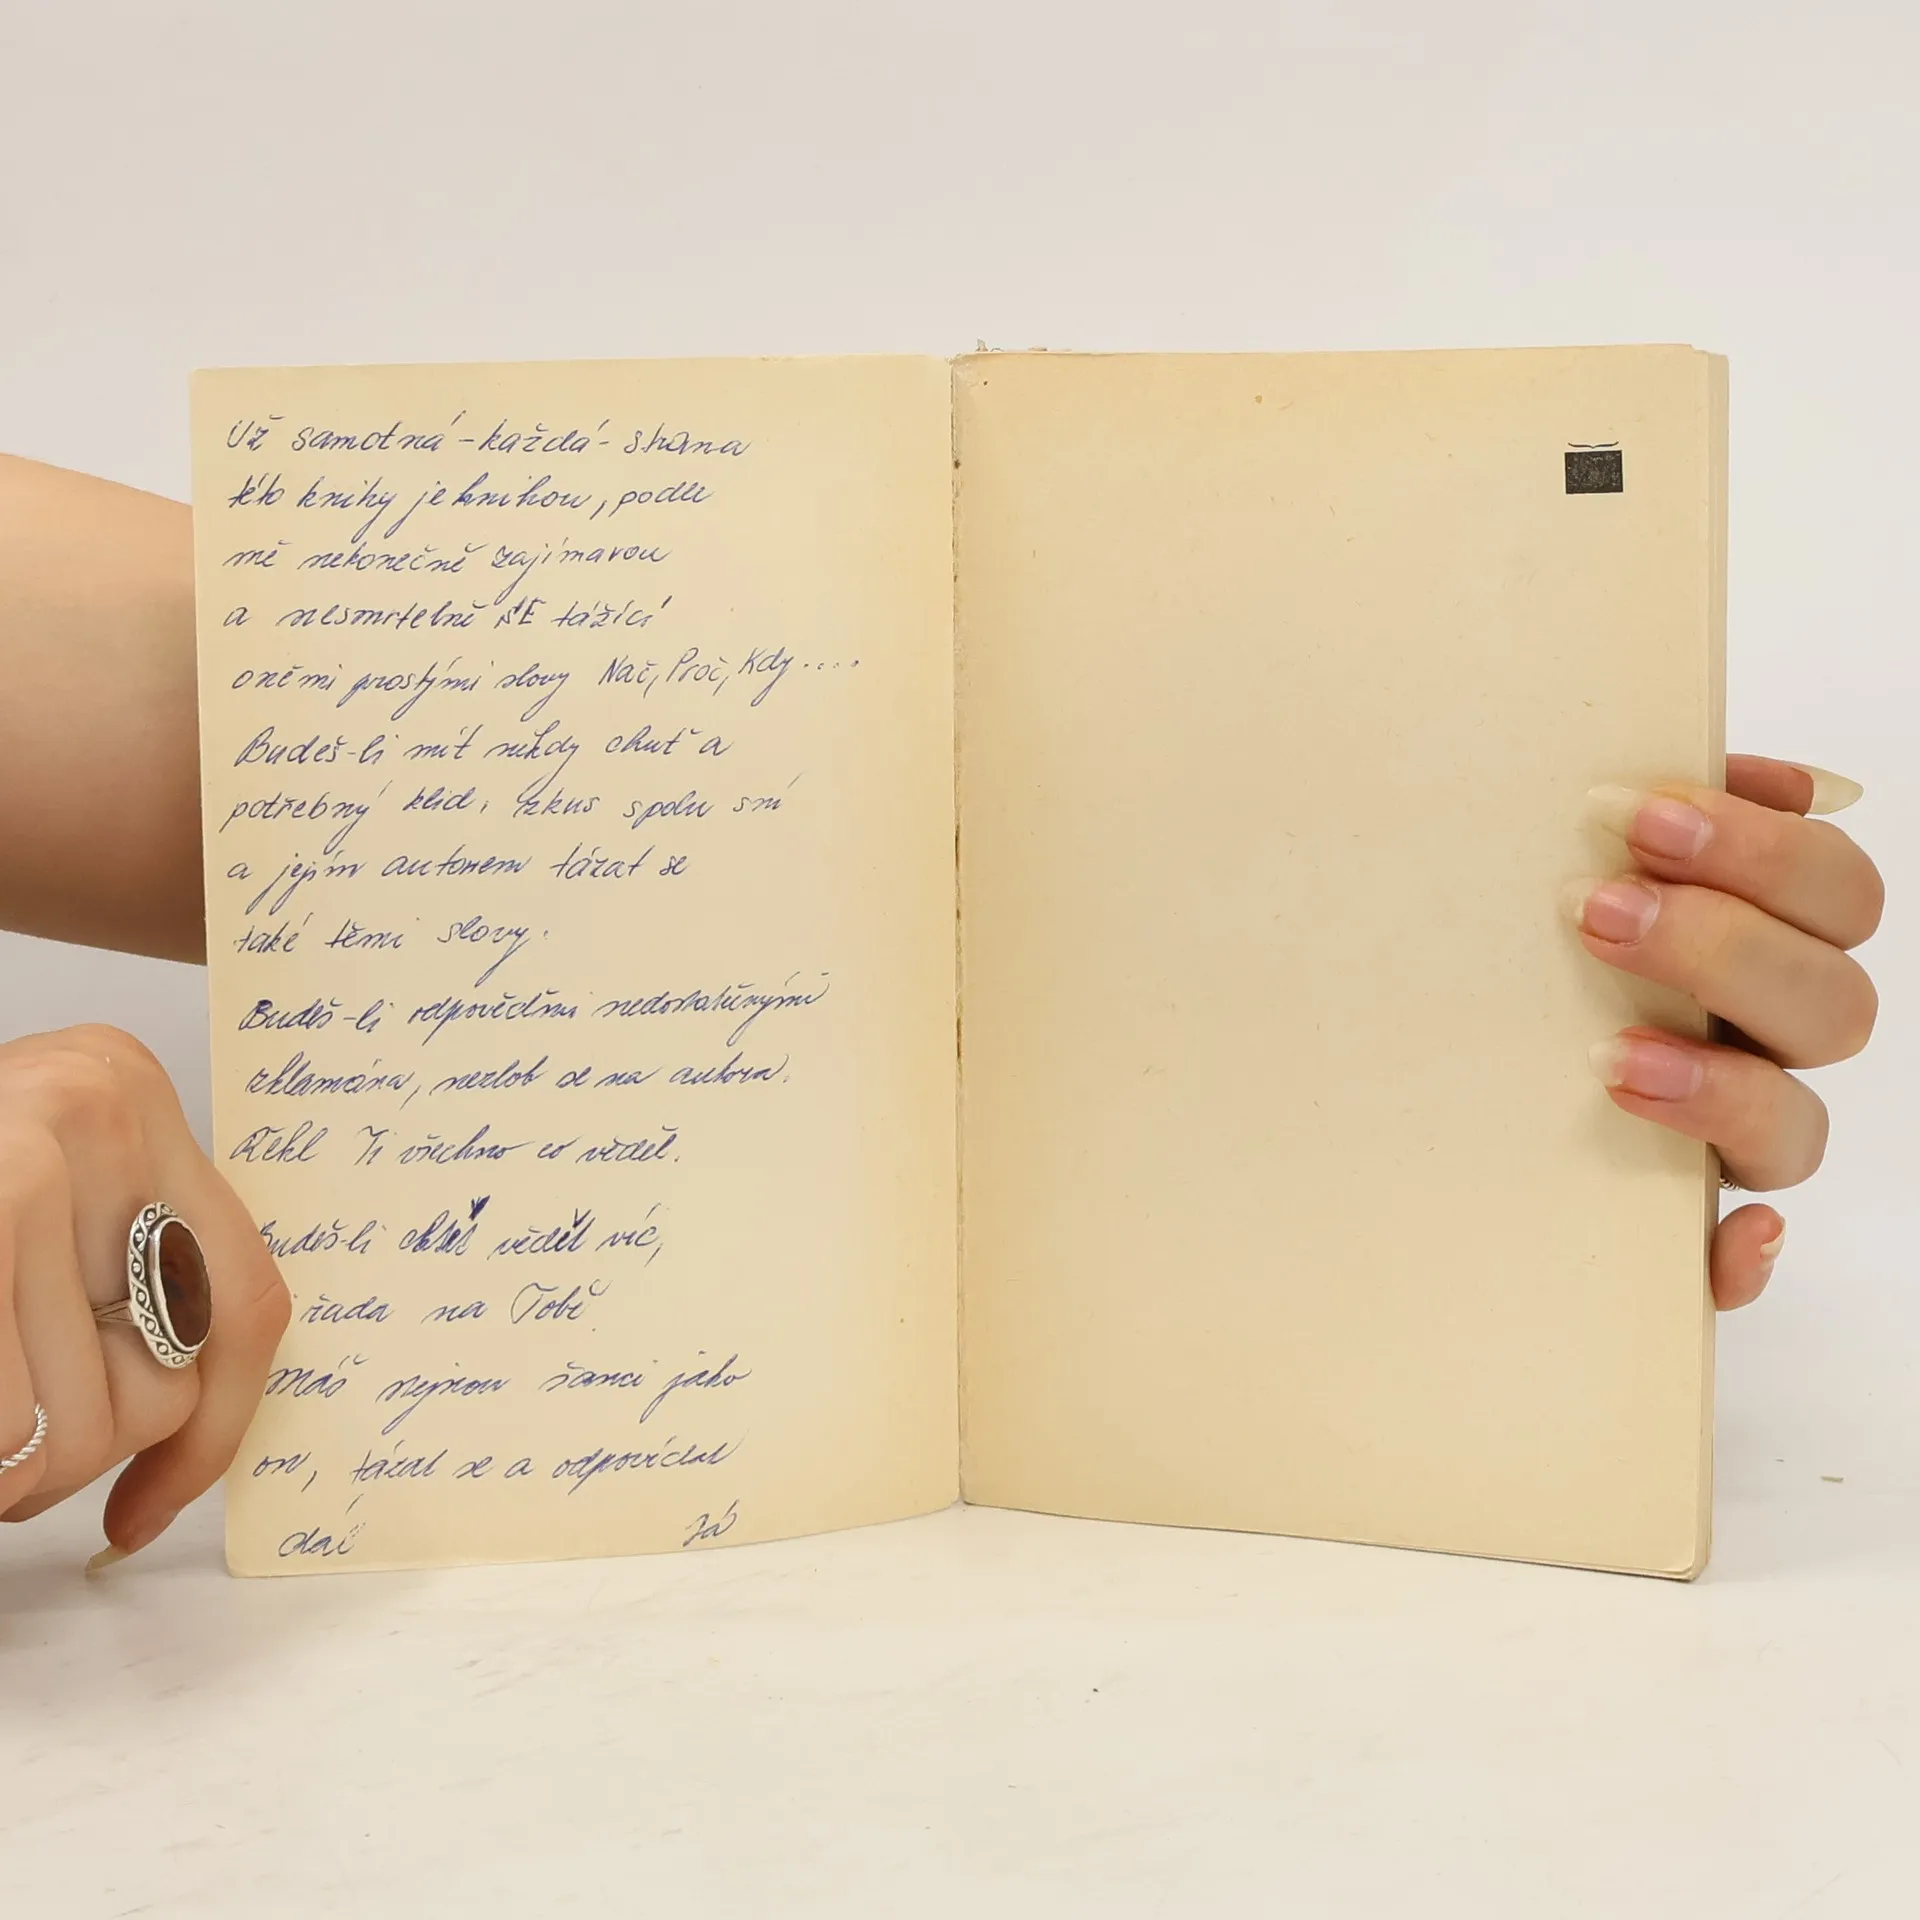 Už samotná - každá - strana
této knihy je knihou, podle
mě nekonečně zajímavou
a nesmrtelně SE tážící
oněmi prostými slovy Nač, Proč, Kdy....
Budeš-li mít někdy chuť a
potřebný klid, zkus spolu s ní
a jejím autorem tázat se
také těmi slovy.
Budeš-li odpověďmi nedostatečnými
zklamána, nezlob se na autora.
Řekl Ti všechno co věděl.
Budeš-li chtít vědět víc,
řada na Tobě
Máš stejnou šanci jako
on, tázat se a odpovídat
dál
Já